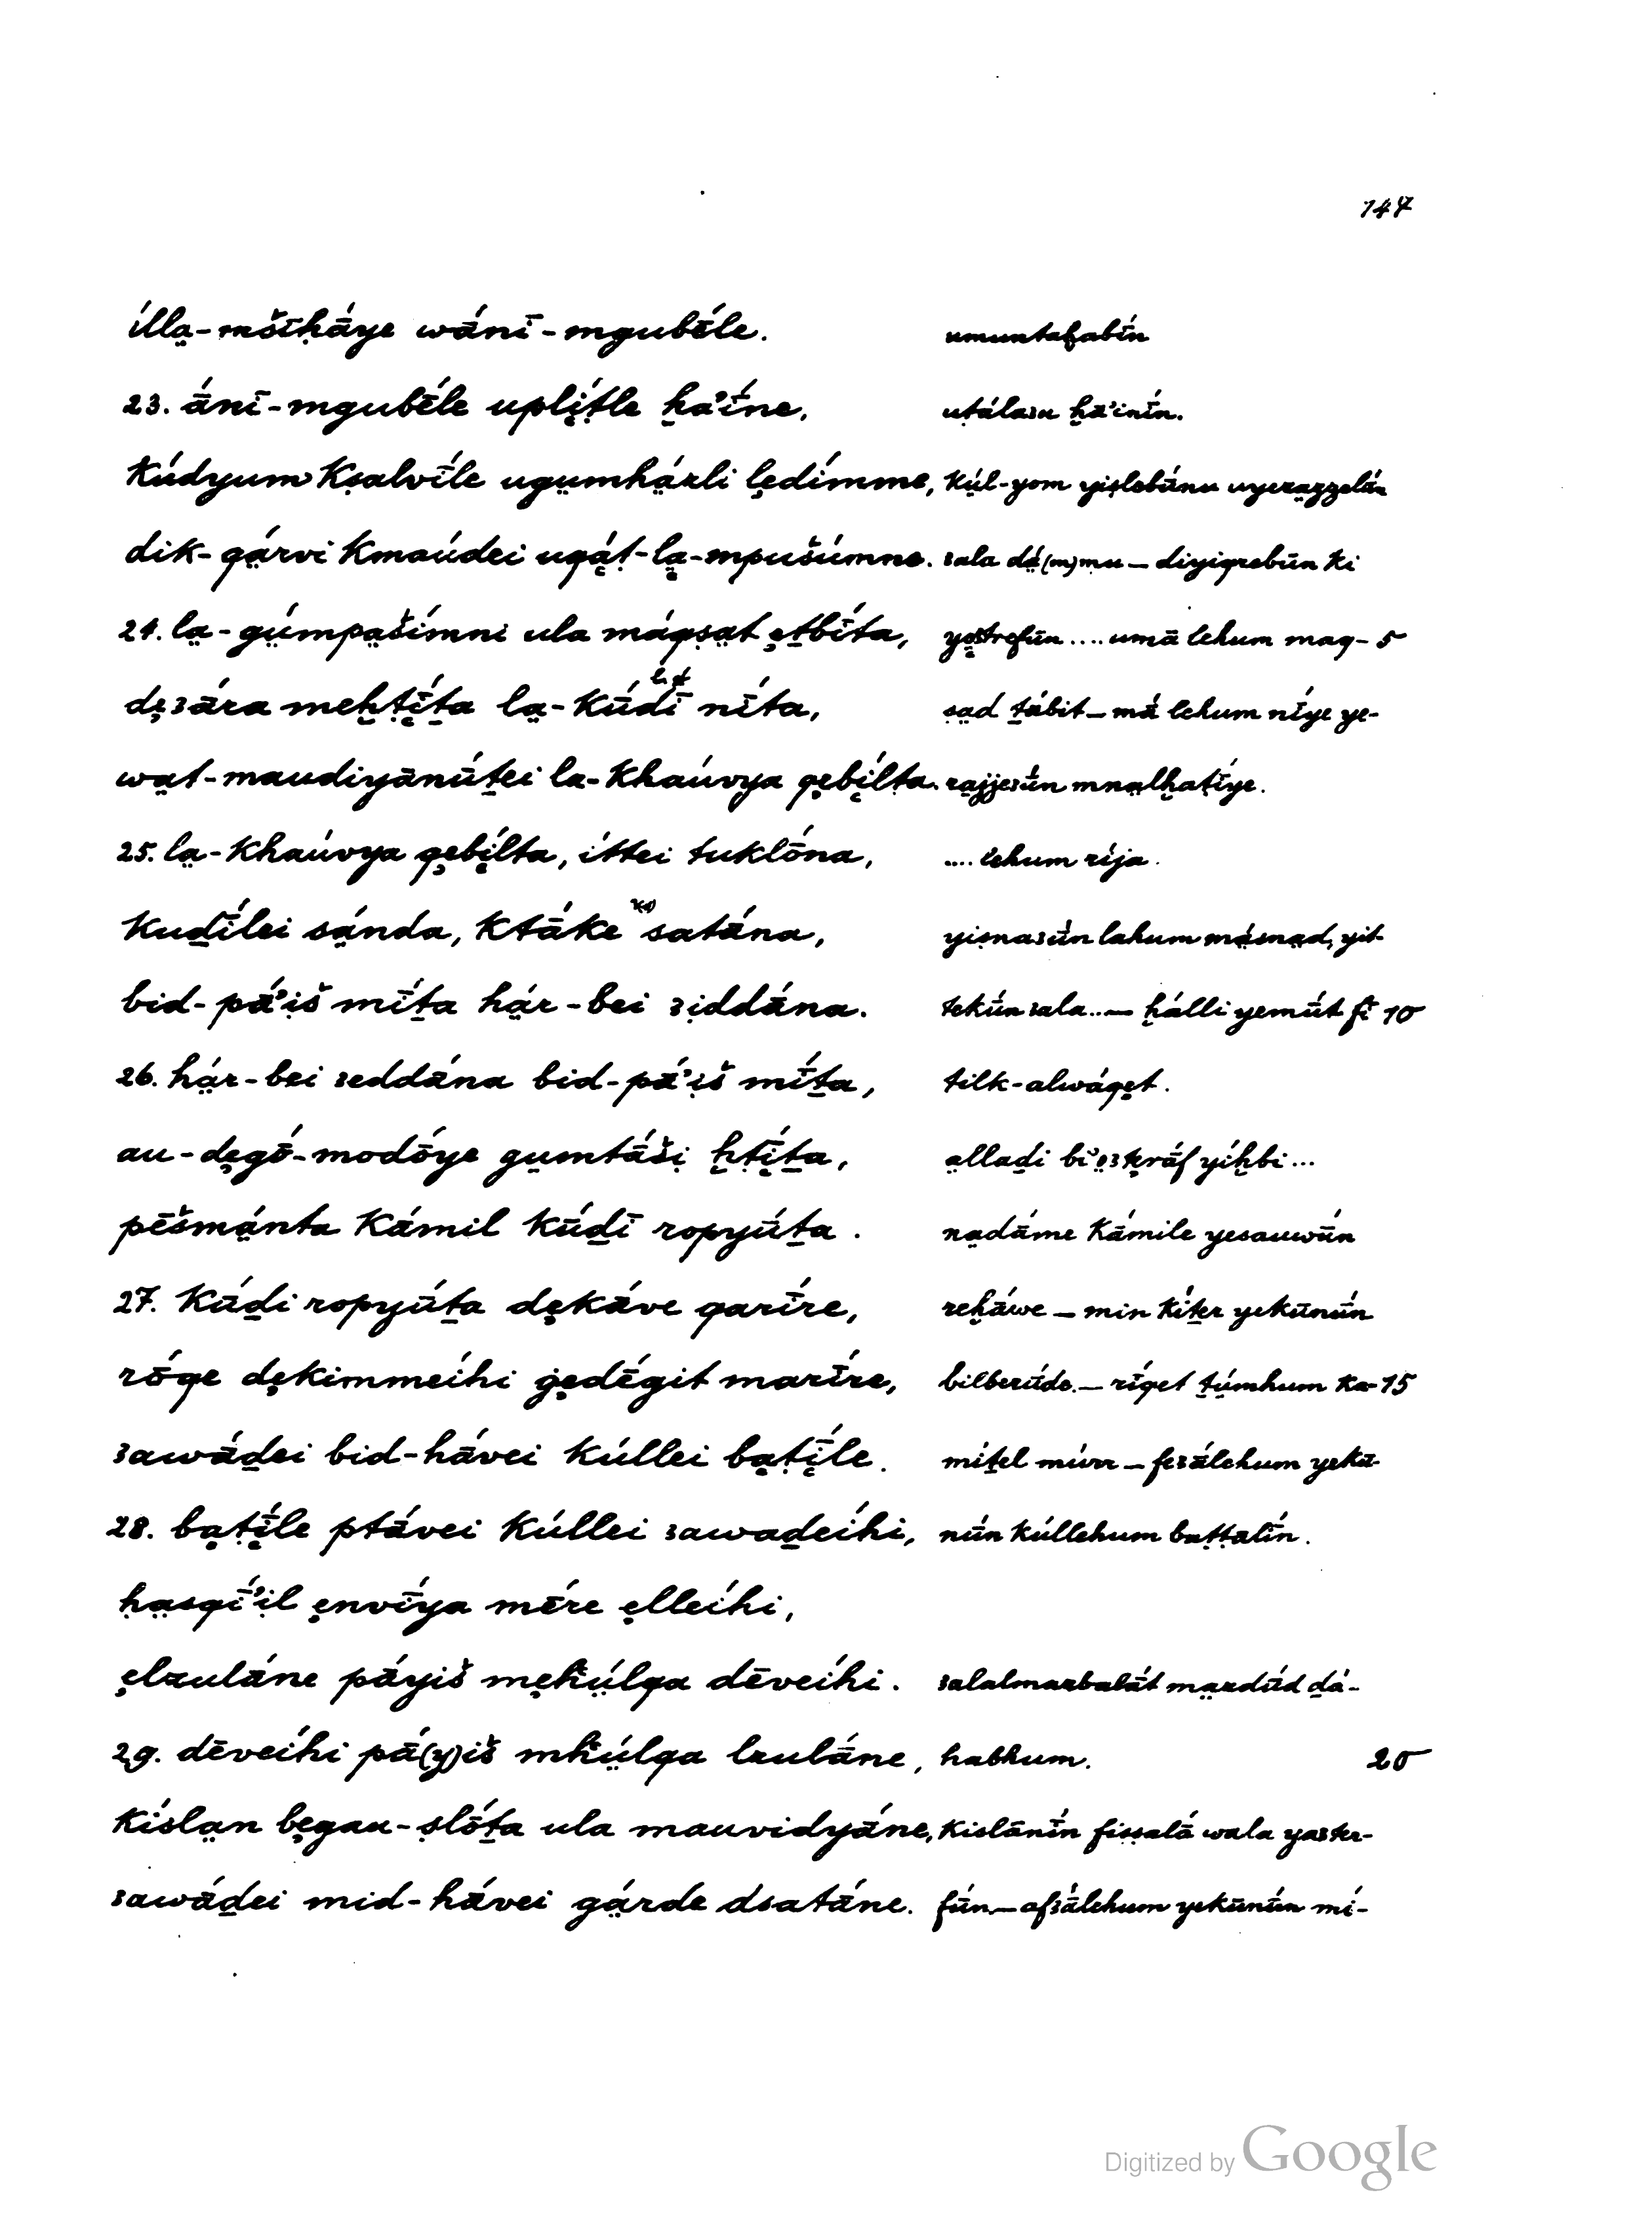 147
ílla̤-mšīḥā́ye wā́nī-mgubḗle. umuntaḫabī́n
23. ā́nī-mgubḗle uplíṭle ḫa'ī́ne. uṭálaʒu ḫā'inī́n.
Kúdyum Kṣalvī́le ugṳmhá̤rli lędímme, Kúl-yom yiṣlebū́nu uyeza̤zzelū́n
dik-qá̤rvi Kmaúdei ugá̤ṭ-la̤-mpušúmne. ʒala dá̤(m)mu — diyiqrebūn ki
24. la̤-gṳ́mpa̤šímni ula máqṣa̤t ęṯbī́ta, yaʒtrefūn .... umā lehum maq- 5
dęʒā́ra meḫṭī́ṯa la̤-Kū́dī nī́ta, ṣa̤d ṯābit — mā́ lehum nī́ye ye-
wa̤t-maudiyānū́ṯei la-Khaúvya qębílta. ra̤jjeʒū́n mnalḫaṭī́ye.
25. la̤-Khaúvya qębílta, íttei tuklṓna, .... lehum ríja.
Kuḏī́lei sá̤nda, Ktā́ke satā́na, yiṣnaʒū́n lahum másna̤d, yit-
bid-pā́'iš mī́ṯa há̤r-bei ʒiddā́na. tekū́n ʒala..— ḫálli yemū́t fī 10
26. há̤r-bei ʒeddā́na bid-pā́'iš mī́ṯa, tilk-alwáqęt.
au-dęgṓ-modṓye gṳmtā́ši ḫṭī́ṯa, a̤llaḏi bi'ęʒtrāf yíḫbi...
pēšmá̤nta Kámil Kū́ḏī ropyū́ṯa. na̤dāme Kāmile yesauwū́n
27. Kū́ḏi ropyū́ṯa dękā́ve qarī́re, reḫā́we — min Kíṯer yekūnū́n
rṓqe dękimmeíhi ġędḗgit marī́re, bilberū́de. — rī́qet ṯúmhum ka- 15
ʒawā́ḏei bid-hā́vei Kúllei ba̤ṭī́le. míṯel múrr — feʒā́lehum yekū-
28. ba̤ṭī́le ptā́vei Kúllei ʒawaḏeíhi, nū́n kúllehum baṭṭalī́n.
ḥa̤sqī́'il ęnvī́ya mḗre ęlleíhi,
ęlzulā́ne pā́yiš mękṳ́lqa dēveíhi. ʒalalmazbalā́t ma̤rdū́d ḏá-
29. dēveíhi pā́(y)iš mkṳ́lqa lzulā́ne, habhum. 20
Kísla̤n bęgau-ṣlṓṯa ula mauvidyā́ne, Kislānī́n fiṣṣalā́ wala yaʒter-
ʒawā́ḏei mid-hā́vei gá̤rde dsatā́ne. fūn — afʒā́lehum yekūnū́n mí-
Digitized by Google